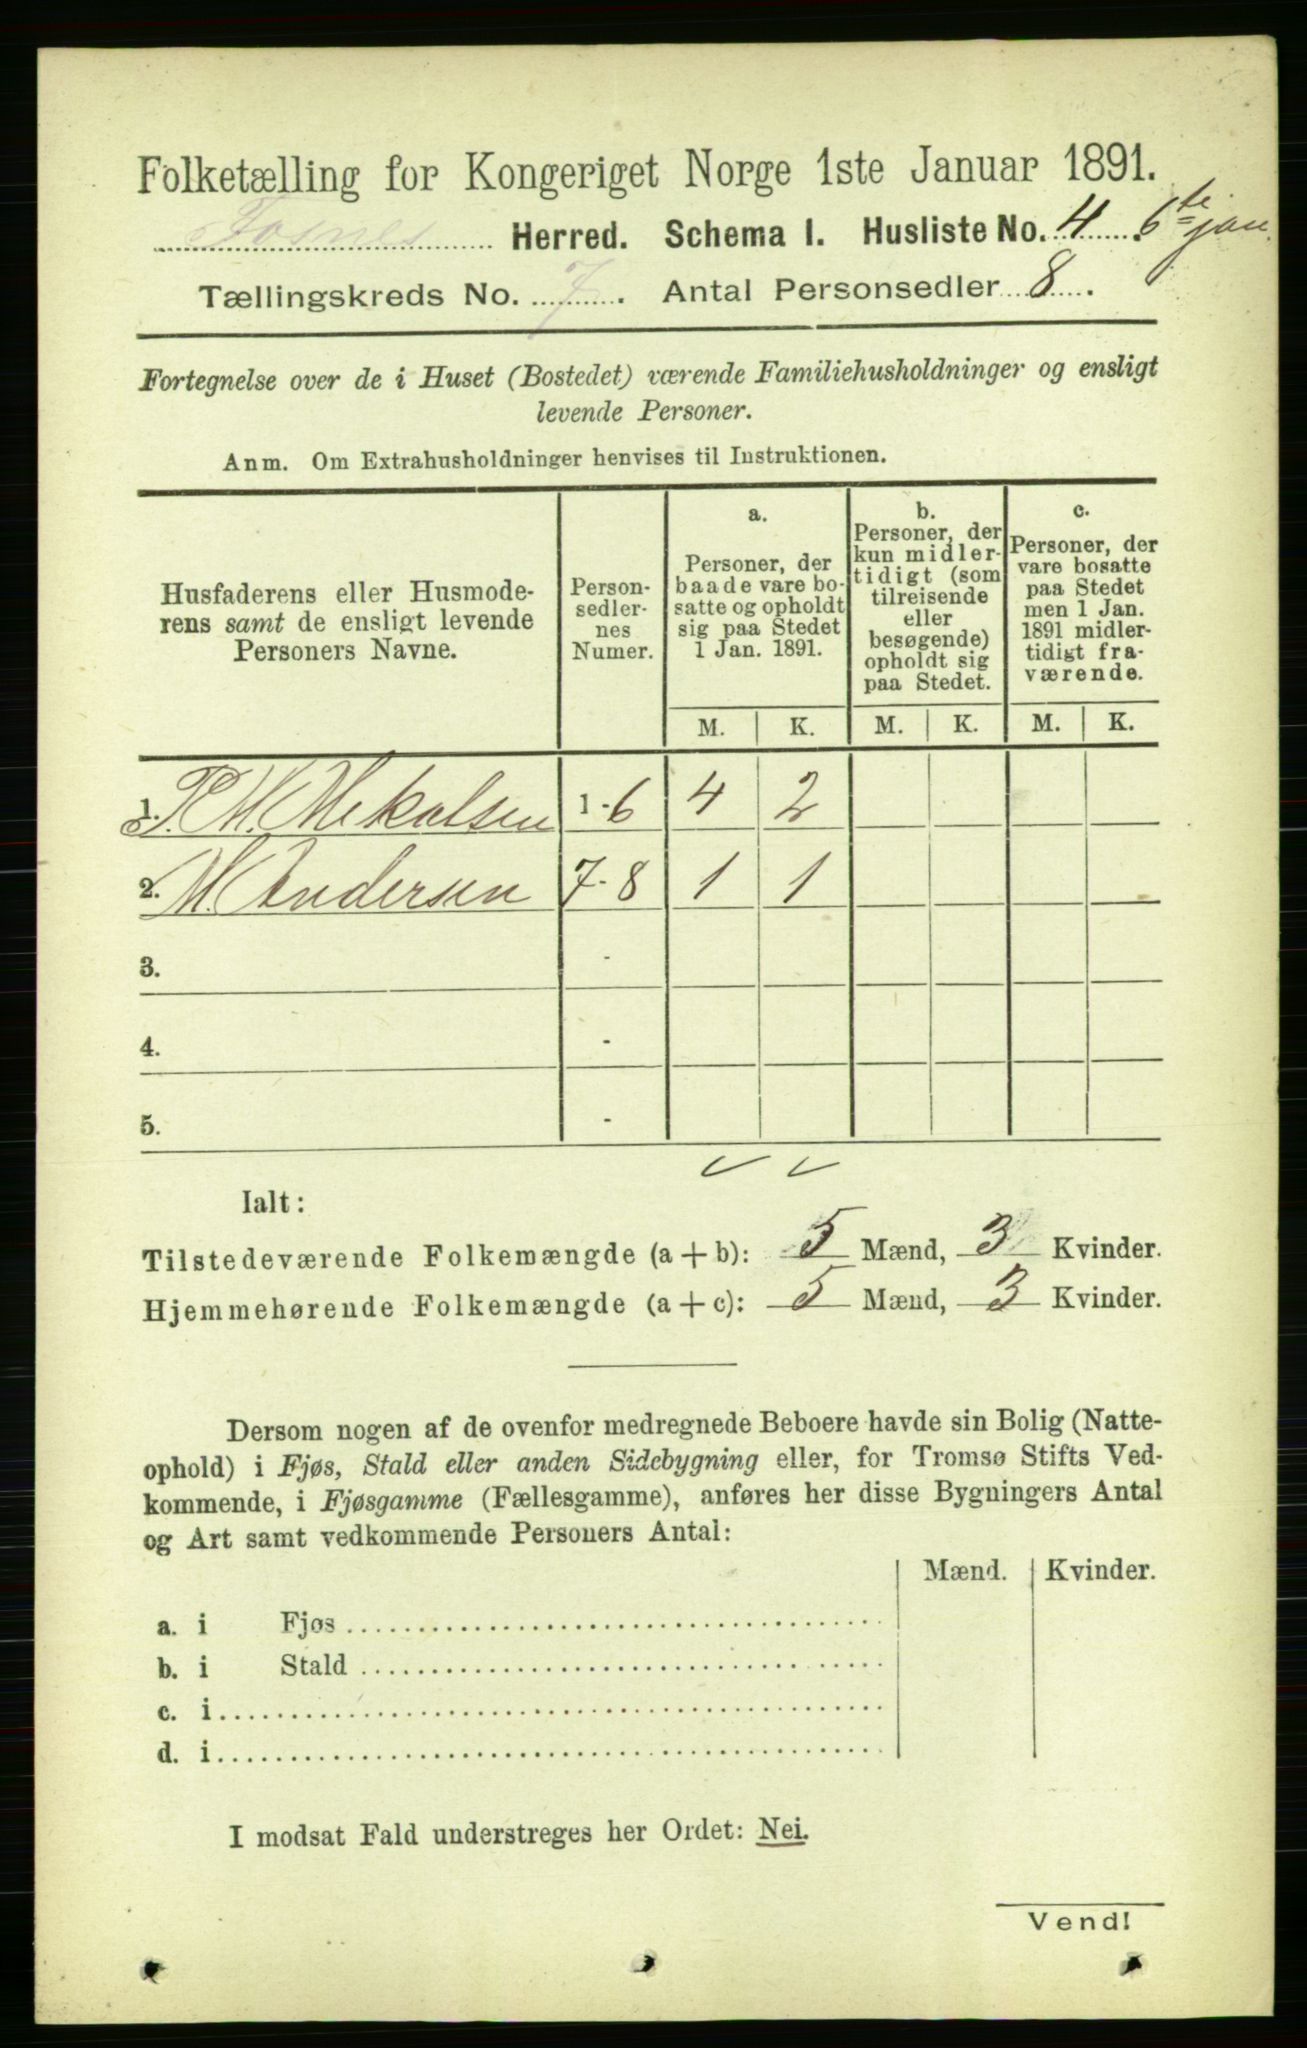 Folketælling for Kongeriget Norge 1ste Januar 1891.
Fosnes Herred. Schema I. Husliste No. 4. 6te jan.
Tællingskreds No. 7. Antal Personsedler 8.
Fortegnelse over de i Huset (Bostedet) værende Familiehusholdninger og ensligt
levende Personer.
Anm. Om Extrahusholdninger henvises til Instruktionen.
Husfaderens eller Husmode-
rens samt de ensligt levende
Personers Navne.
Person-
sedler-
nes
Numer.
a.
Personer, der
baade vare bo-
satte og opholdt
sig paa Stedet
1 Jan. 1891.
b.
Personer, der
kun midler-
tidigt (som
tilreisende
eller
besøgende)
opholdt sig
paa Stedet.
c.
Personer, der
vare bosatte
paa Stedet
men 1 Jan.
1891 midler-
tidigt fra-
værende.
M. K. M. K. M. K.
1. P. M. Mekalsen 1-6 4 2
2. M. Andersen 7-8 1 1
3. -
4. -
5. -
Ialt:
Tilstedeværende Folkemængde (a + b): 5 Mænd, 3 Kvinder.
Hjemmehørende Folkemængde (a + c): 5 Mænd, 3 Kvinder.
Dersom nogen af de ovenfor medregnede Beboere havde sin Bolig (Natte-
ophold) i Fjøs, Stald eller anden Sidebygning eller, for Tromsø Stifts Ved-
kommende, i Fjøsgamme (Fællesgamme), anføres her disse Bygningers Antal
og Art samt vedkommende Personers Antal:
Mænd. Kvinder.
a. i Fjøs
b. i Stald
c. i
d. i
I modsat Fald understreges her Ordet: Nei.
Vend!